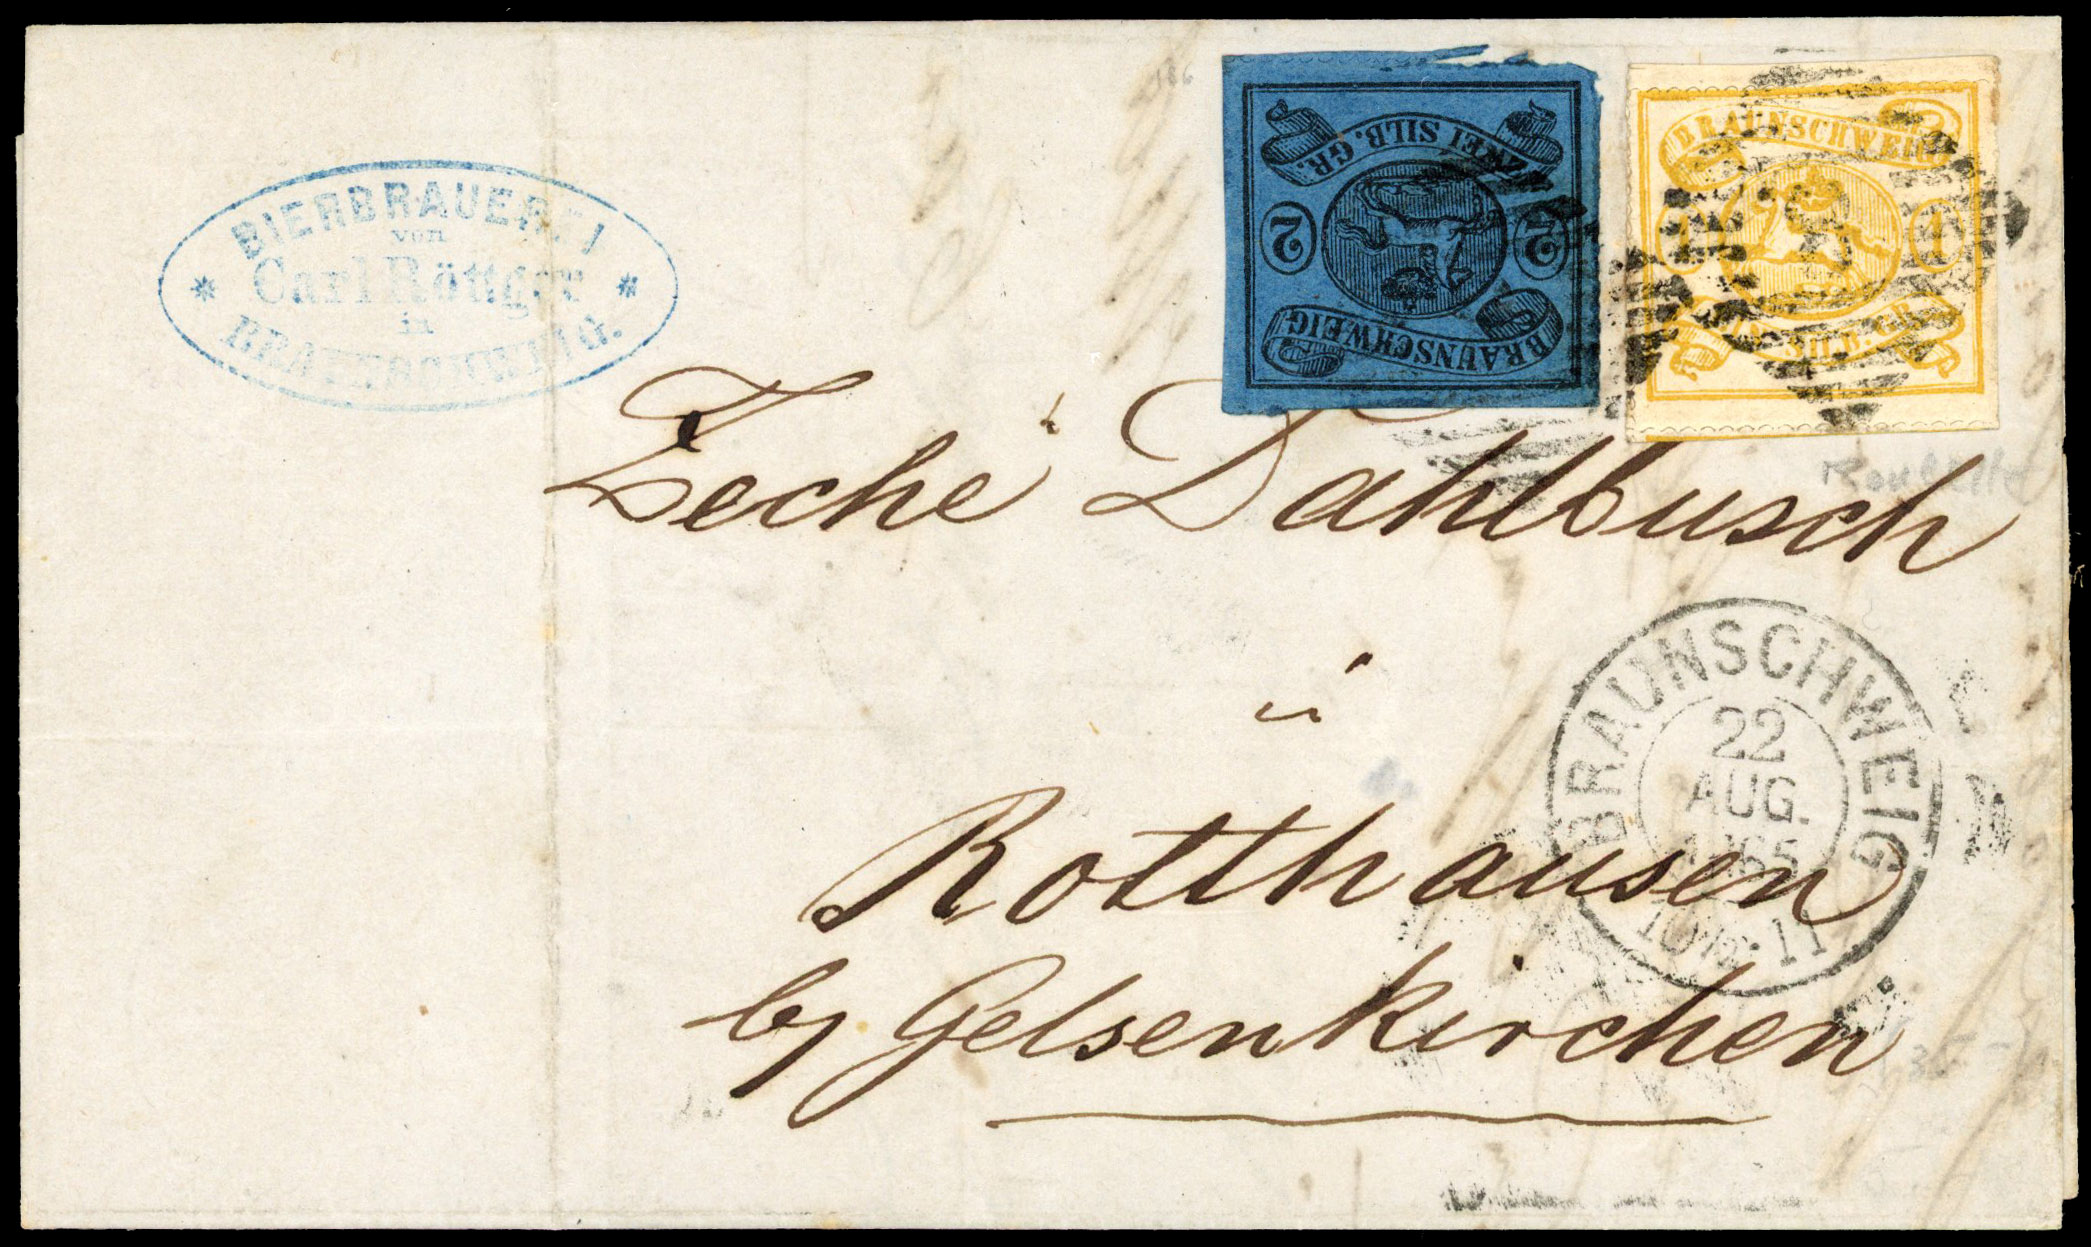 BIERBRAUEREI
von
Carl Röttger
in
BRAUNSCHWEIG.
ZWEI SILB. GR.
2 2
BRAUNSCHWEIG
BRAUNSCHWEIG
1 1
SILB. GR.
Zeche Dahlbusch
BRAUNSCHWEIG
22
AUG.
1865
10 11
Rotthausen
by Gelsenkirchen